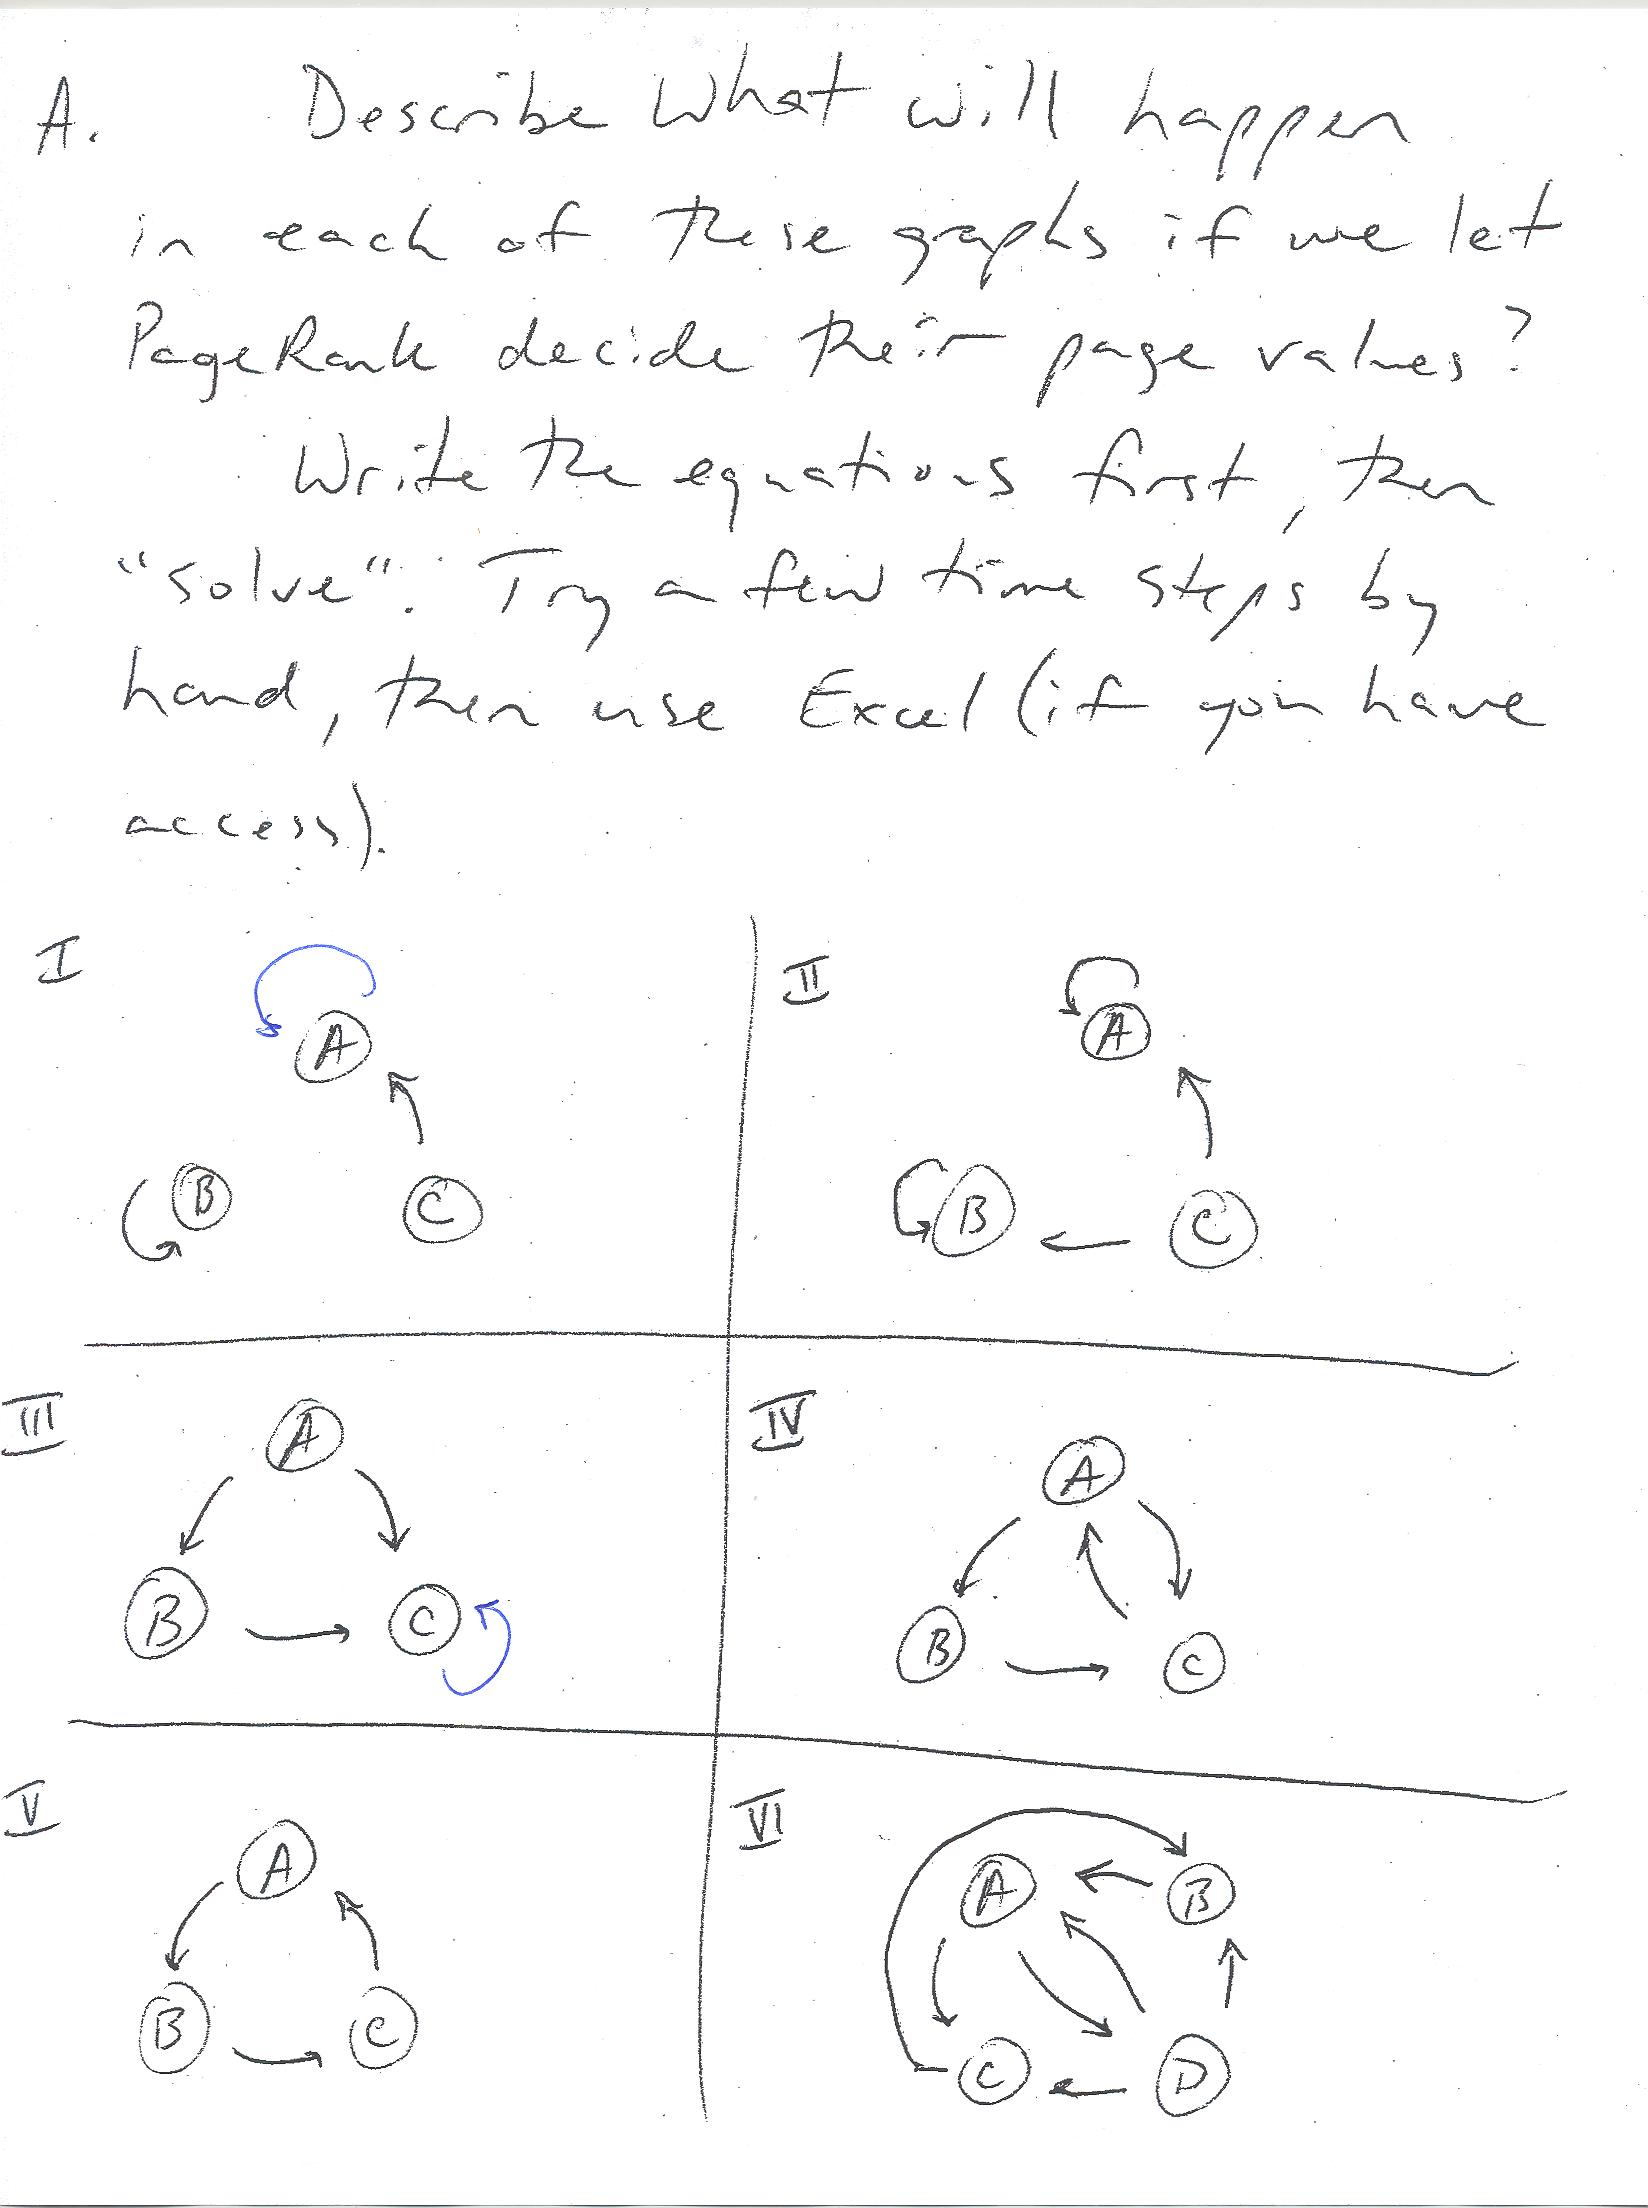 A. Describe What will happen
in each of these graphs if we let
PageRank decide their page values?
Write the equations first, then
"solve". Try a few time steps by
hand, then use Excel (if you have
access).
I
A
B
C
II
A
B
C
III
A
B
C
IV
A
B
C
V
A
B
C
VI
A
B
C
D